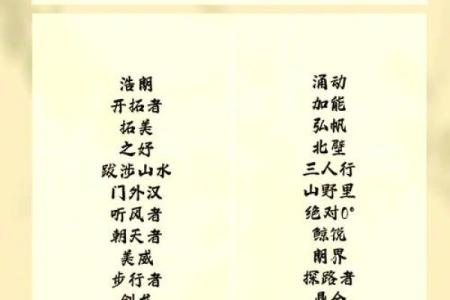 浩朗
开拓者
拓美
之妤
跋涉山水
门外汉
听风者
朝天者
美威
步行者
涌动
加能
弘帆
北壁
三人行
山野里
绝对0°
鲸悦
朗界
探路者